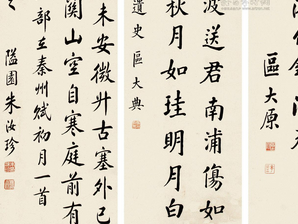 區大原
波送君南浦傷如
秋月如珪明月白
遺史區大典
未安微升古塞外已
關山空自寒庭前有
秦州賦初月一首
隘園朱汝珍